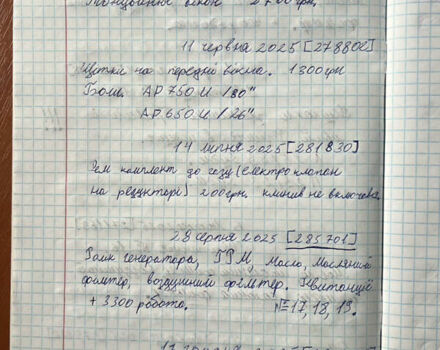 2700 грн.
11 червня 2025 [278802]
Щітки на передні вікна. 1300грн
Бош. AP 750 U /80"
AP 650 U /26"
14 липня 2025 [281830]
Рем комплект до газу (електроклапан
на редукторі) 200грн. клинив не включався.
28 серпня 2025 [285701]
Ролик генератора, ГРМ, Масло, Масляний
фільтер, воздушний фільтер. Квитанції
+ 3300 робота. №17, 18, 19.